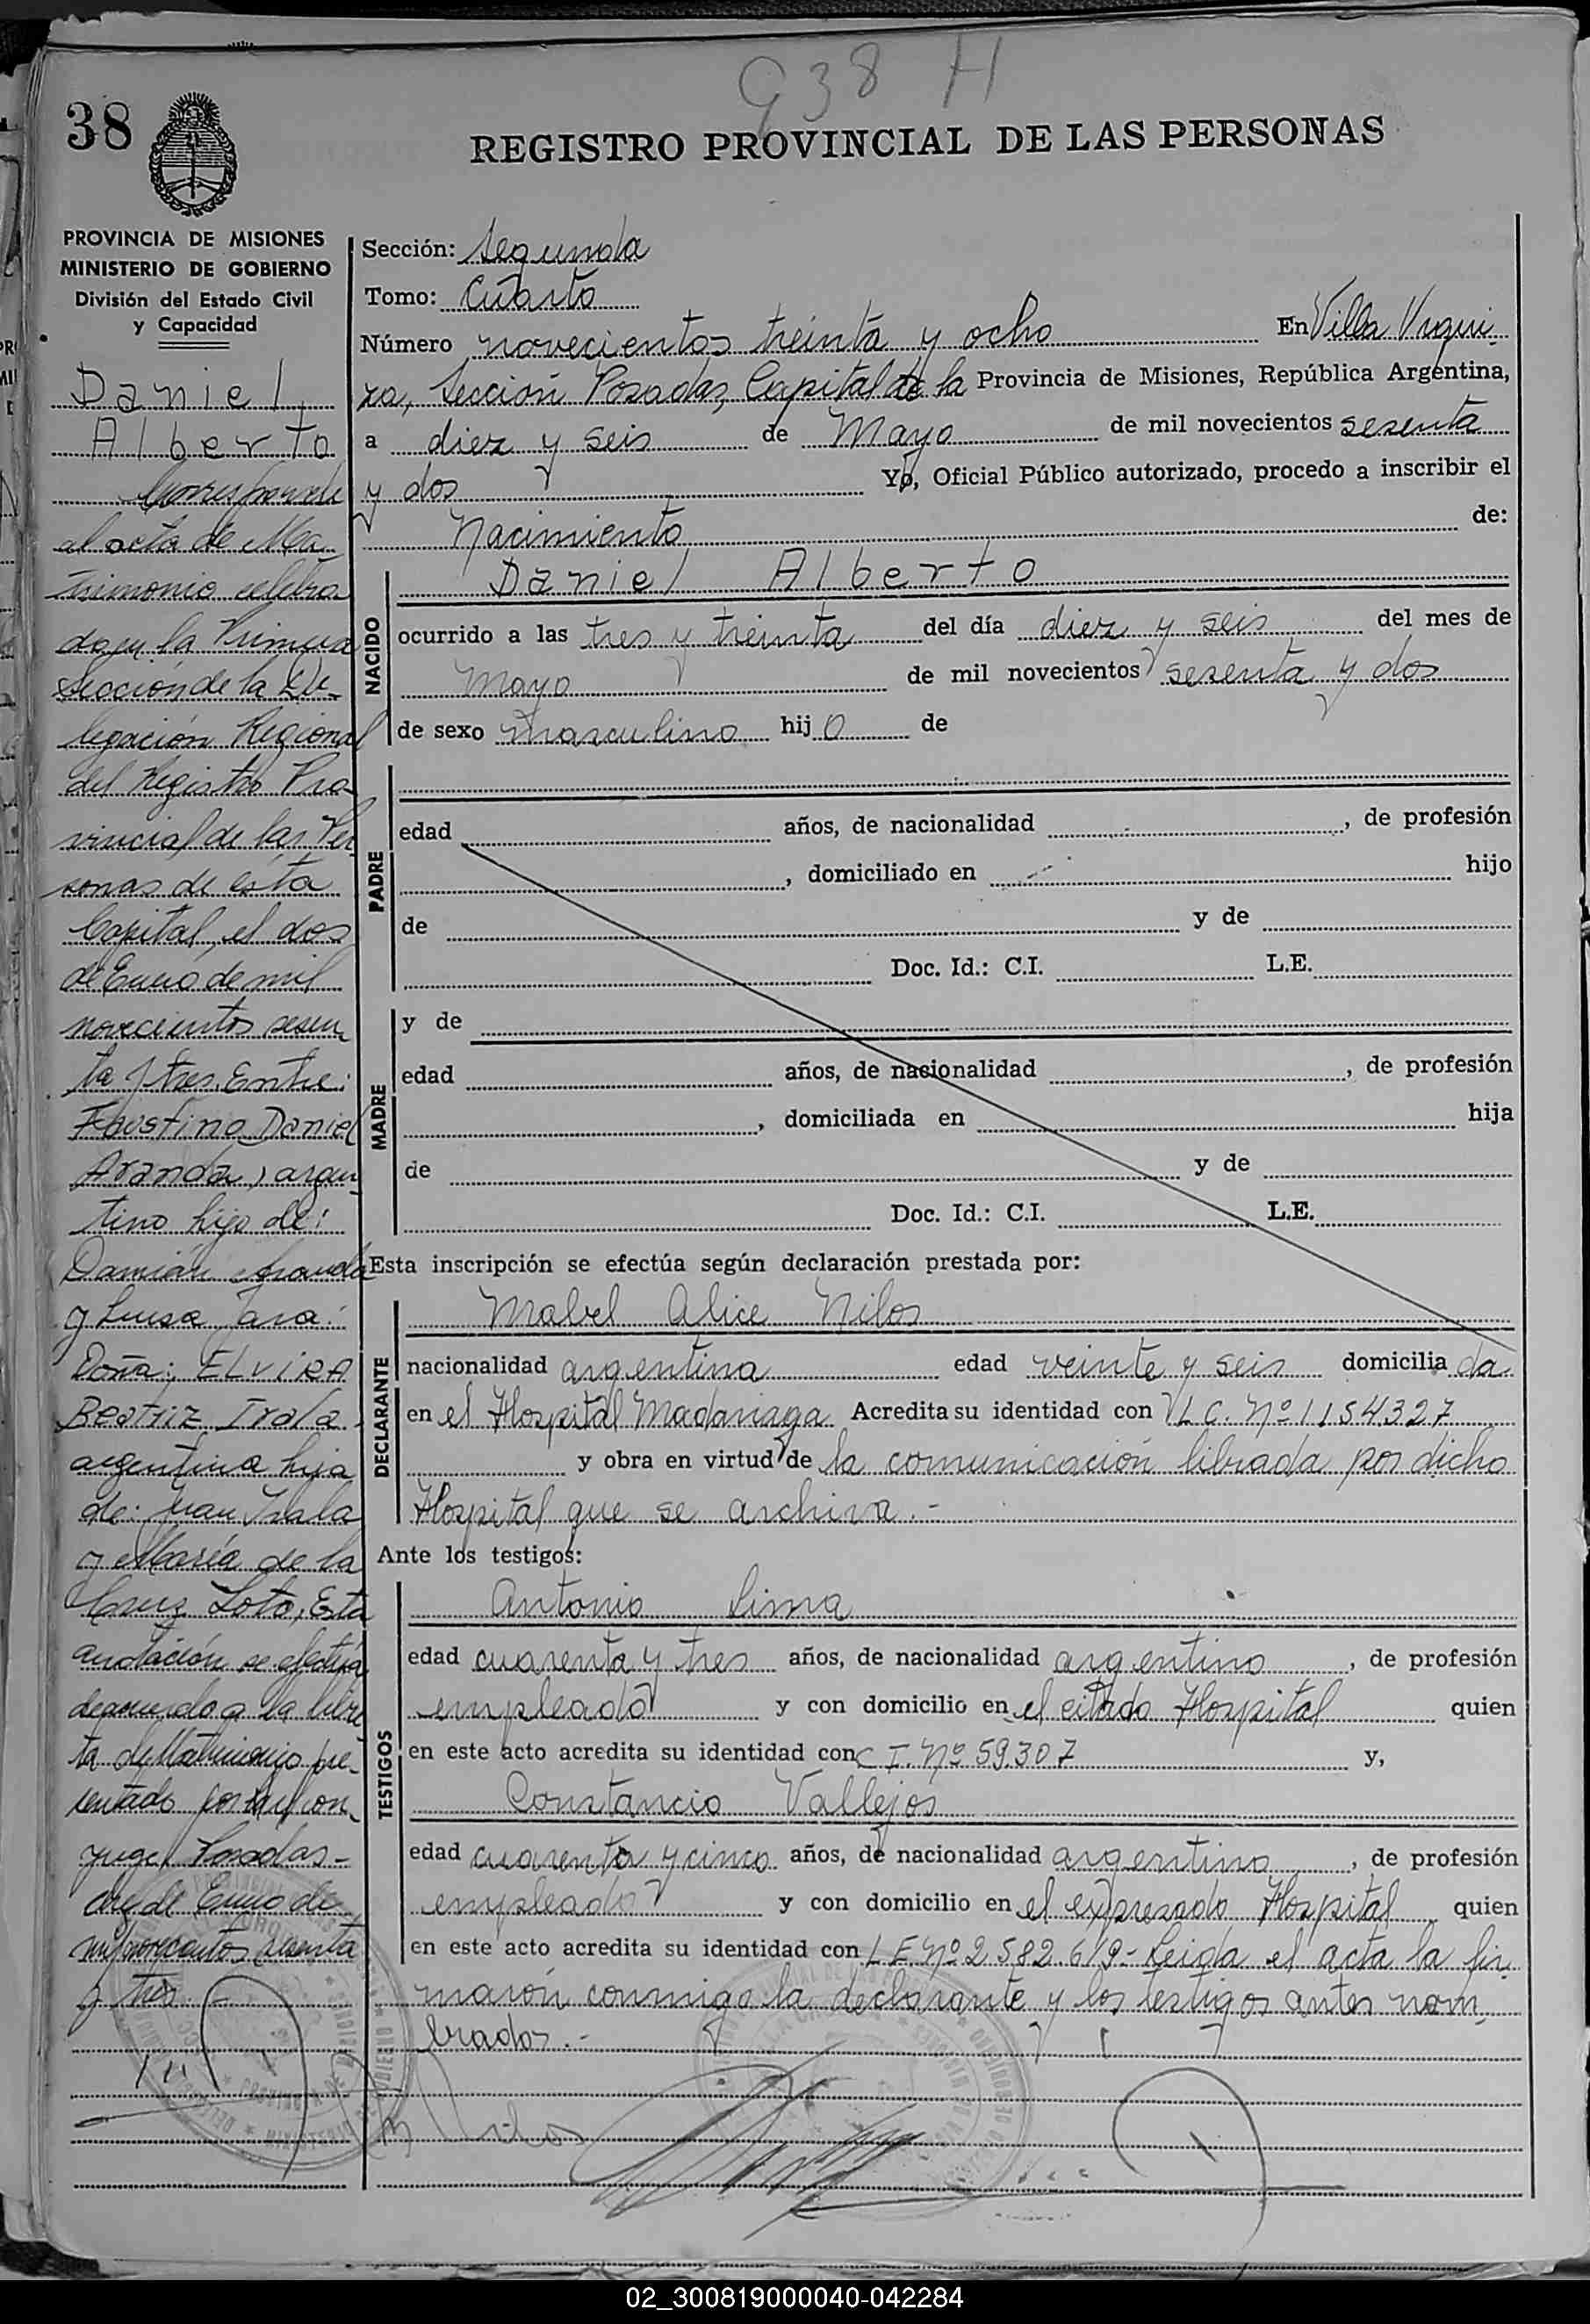 938 H
38
REGISTRO PROVINCIAL DE LAS PERSONAS
PROVINCIA DE MISIONES
MINISTERIO DE GOBIERNO
División del Estado Civil
y Capacidad
Daniel
Alberto
Corresponde
al acta de Ma-
trimonio celebra
do en la Primera
Sección de la De-
legación Regional
del Registro Pro
vincial de las Per
sonas de esta
Capital, el dos
de Enero de mil
novecientos sesen
ta y tres. Entre:
Faustino Daniel
Aranda, argen
tino hijo de:
Damián Aranda
y Luisa Jara:
Doña: ELVIRA
Beatriz Irala.
argentina hija
de: Juan Irala
y María de la
Cruz Soto, Esta
anotación se efectúa
deacuerdo a la libre
ta de Matrimonio pre-
sentado por la con
yuge. Posadas-
de Enero de
mil novecientos sesenta
y tres.-
Sección: Segunda
Tomo: Cuarto
Número novecientos treinta y ocho En Villa Urqui-
za, Sección Posadas, Capital de la Provincia de Misiones, República Argentina,
a diez y seis de Mayo de mil novecientos sesenta
y dos Yo, Oficial Público autorizado, procedo a inscribir el
Nacimiento de:
NACIDO
Daniel Alberto
ocurrido a las tres y treinta del día diez y seis del mes de
Mayo de mil novecientos sesenta y dos
de sexo masculino hijo de
PADRE
edad años, de nacionalidad , de profesión
, domiciliado en hijo
de y de
Doc. Id.: C.I. L.E.
MADRE
y de
edad años, de nacionalidad , de profesión
, domiciliada en hija
de y de
Doc. Id.: C.I. L.E.
Esta inscripción se efectúa según declaración prestada por:
DECLARANTE
Mabel Alice Nilos
nacionalidad argentina edad veinte y seis domiciliada
en el Hospital Madariaga Acredita su identidad con L C. Nº 1154327
y obra en virtud de la comunicación librada por dicho
Hospital que se archiva.-
Ante los testigos:
TESTIGOS
Antonio Lima
edad cuarenta y tres años, de nacionalidad argentino, de profesión
empleado y con domicilio en el citado Hospital quien
en este acto acredita su identidad con C I. Nº 59307 y,
Constancio Vallejos
edad cuarenta y cinco años, de nacionalidad argentino, de profesión
empleado y con domicilio en el expresado Hospital quien
en este acto acredita su identidad con L E Nº 2 582.619- Leida el acta la fir-
maron conmigo la declarante y los testigos antes nom-
brados.-
02_300819000040-042284